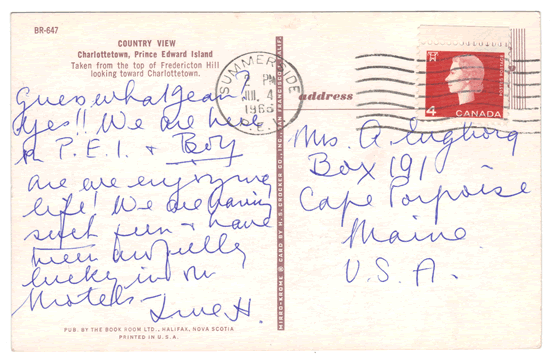 BR-647
COUNTRY VIEW
Charlottetown, Prince Edward Island
Taken from the top of Fredericton Hill
looking toward Charlottetown.
Guess what Jean?
Yes!! We are here
in P.E.I. & Boy
are we enjoying
life! We are having
such fun & have
been awfully
lucky in our
Motels –
PUB. BY THE BOOK ROOM LTD., HALIFAX, NOVA SCOTIA
PRINTED IN U.S.A.
SUMMERSIDE
2 PM
JUL 4
1966
P.E.I.
address
4
CANADA
Mrs. A.
Box 191
Cape Porpoise
Maine
U.S.A.